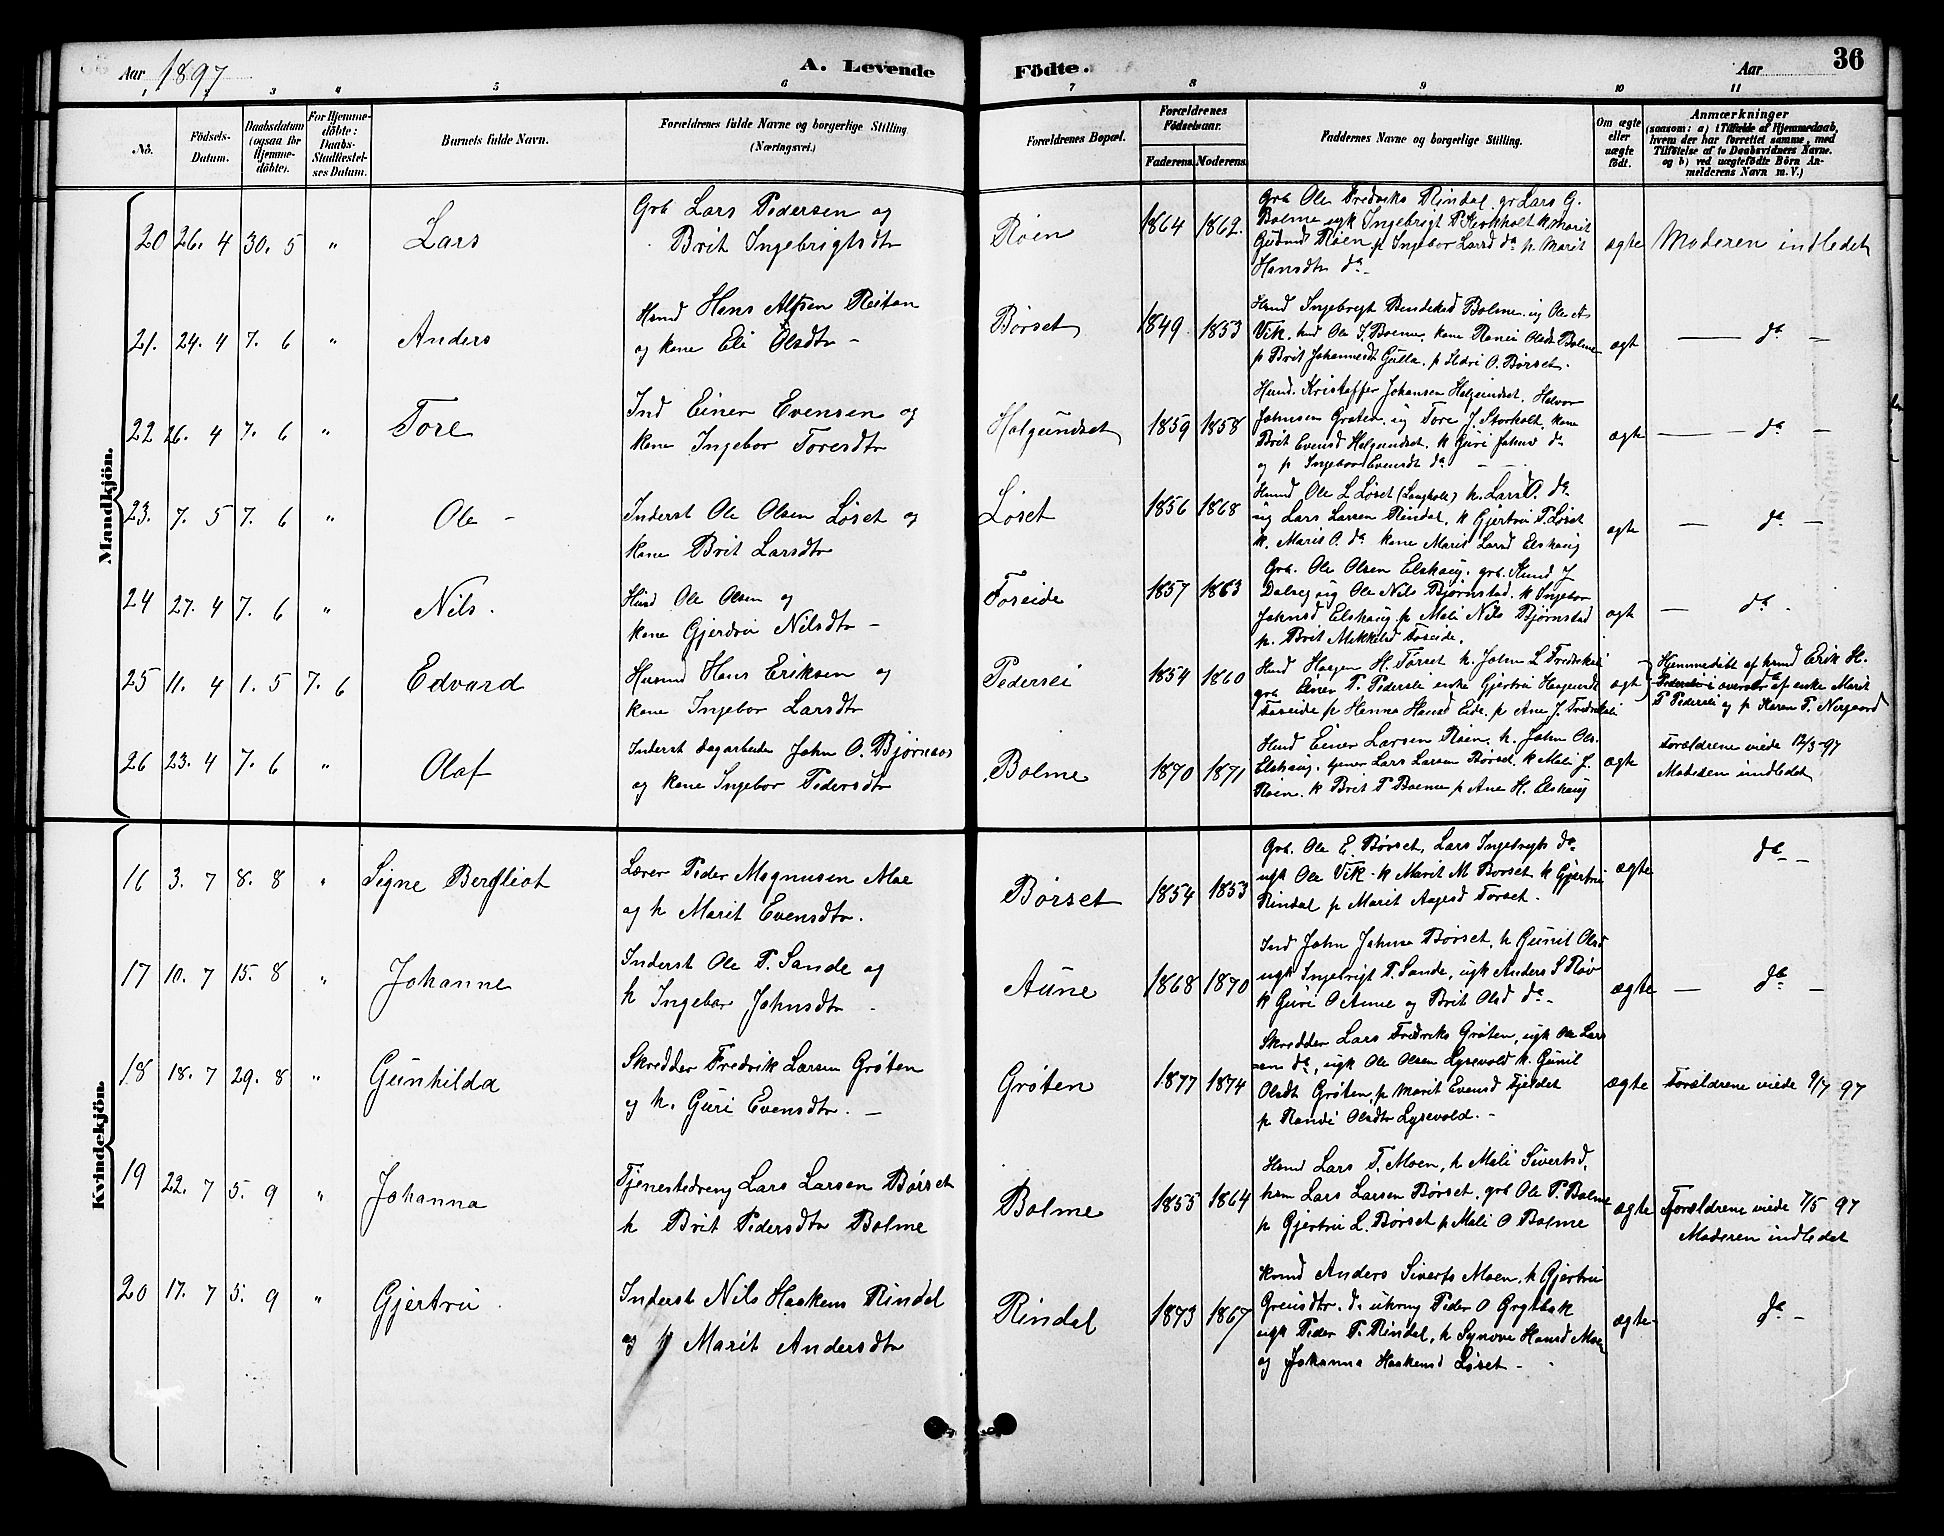 Aar 1897
A. Levende
Födte.
Aar
36
1 2 3 4 5 6 7 8 9 10 11
No.
Födsels-Datum.
Daabsdatum (ogsaa for Hjemmedöbte).
For Hjemmedöbte: Daabs-Stadfæstelses Datum.
Barnets fulde Navn.
Forældrenes fulde Navne og borgerlige Stilling (Næringsvei.)
Forældrenes Bopæl.
Forældrenes Födselsaar.
Faderens. Moderens.
Faddernes Navne og borgerlige Stilling.
Om ægte eller uægte födt.
Anmærkninger
(saasom: a) i Tilfælde af Hjemmedaab, hvem der har forrettet samme, med Tilföielse af to Daabsvidners Navne. og b) ved uægtefödte Börn Anmelderens Navn m. V.)
Mandkjön.
20 26. 4 30. 5 " Lars
Grb Lars Pedersen og
Brit Ingebrigtsdtr
Røen 1864 1862.
Grb Ole Fredriks Rindal, gr Lars G.
Bolme ugk Ingebrigt P. Storholt k Marit
Gudmds Røen p Ingebor Larsd do p. Marit
Hansdtr do -
ægte Moderen indledet
21. 24. 4 7. 6 " Anders
Hsmd Hans Reitan
og kone Eli Olsdtr -
Børset 1849 1853
Hsmd Ingebrigt Bolme
Vik. hmd Ole S. Bolme, kone Olsdtr Bolme
p Brit Johannesdt Gulla. p Sidri O. Børset.
ægt - do -
22 26. 4 7. 6 " Tore
Ind Einer Evensen og
kone Ingebor Toresdtr
Halgundset 1859 1858
Husmd. Kristoffer Johansen Halgundset, Halvor
Johnsen Grøten, ug Tore J. Storholt, kone
Brit Evensd Halgundset, k Guri Johns do
og p Ingebor Evensdt do
ægte - do -
23. 7. 5 7. 6 " Ole -
Inderst Ole Olsen Løset og
kone Brit Larsdtr
Løset 1856 1868
Husmd Ole L Løset (Langholt) h. Lars O. do
ug Lars Larsen Rindal, k Gjertru T. Løset
k. Marit O. do kone Marit Larsd Elshaug
ægt - do -
24 27. 4 7. 6 " Nils.
Husd Ole Olsen og
kone Gjerdru Nilsdtr -
Foseide 1857 1863
Grb. Ole Olsen Elshaug. grb.
ug Ole Nils Bjørnstad. k Ingebor
Johnsd Elshaug. p Mali Nils Bjørnstad
p. Brit Mikkelsd Foseide.
ægt - do -
25 11. 4 1. 5 7. 6 Edvard
Husmd Hans Eriksen og
kone Ingebor Larsdtr
Pedersli 1854 1860
Hsmd H. Torset h. John L Fredriksli
grb Einer T. Pedersli enke Gjertru
Foseide p Hanna Hansd Eide, p Ane J. Fredriksli
ægt
Hjemmedøbt af hsmd Erik H.
Pedersli i overvær af enke Marit
P Pedersli og p Karen T. Nergaard
26 23. 4 7. 6 " Olaf
Inderst dagarbeider John O. Bjørnaas
og kone Ingebor Pedersdtr
Bolme 1870 1871
Hsmd Einer Larsen Røen. h. John Ols.
Elshaug. Lars Larsen Børset, k Mali J.
Røen. k Brit P Bolme p Ane H. Elshaug
ægte
Forældrene viede 12/3-97
Moderen indledet
Kvindekjön.
16 3. 7 8. 8 " Signe Bergliot
Lærer Peder Magnusen Moe
og h Marit Evensdtr.
Børset 1854 1853
Grb. Ole E. Børset, Lars Ingebrigts do
ugk Ole Vik - k Marit M Børset, k Gjertru
Rindal p Marit Aagesd Torset.
ægte do -
17 10. 7 15. 8 " Johanne
Inderst Ole P. Sande og
h Ingebor Johnsdtr -
Aune 1868 1870
Ind John Johnsa Børset, h Gunil Olsd
ugk Ingebrigt P. Sande, ugk Anders S Røv
k Guri O Aune og Brit Olsd do -
ægte - do -
18 18. 7 29. 8 " Gunhilda
Skredder Fredrik Larsen Grøten
og h. Guri Evensdtr. -
Grøten 1877 1874
Skredder Lars Fredriks Grøten, ugk Ole Lars
en do, ugk Ole Olsen Lysevold k. Gunil
Olsdt Grøten, p Marit Evensd Fjeldet
p Randi Olsdtr Lysevold. -
ægte Forældrene viede 9/7 97
19 22. 7 5. 9 " Johanna
Tjenestedreng Lars Larsen Børset
h Brit Pedersdtr Bolme
Bolme 1855 1864
Hsmd Lars T. Moen, h Mali Sivertsd.
hsm Lars Larsen Børset, grb Ole P. Bolme
p Gjertru L. Børset p Mali O Bolme
ægte Forældrene viede 7/5 97
Moderen indledet
20 17. 7 5. 9 " Gjertru
Inderst Nils Haakens Rindal
og h Marit Andersdtr
Rindal 1873 1867
Hsmd Anders Siverts Moen, h Gjertru
do Peder O
ugk Peder T. Rindal, h Synove Hansd Moen
og Johanna Haakensd Løset -
ægte - do -